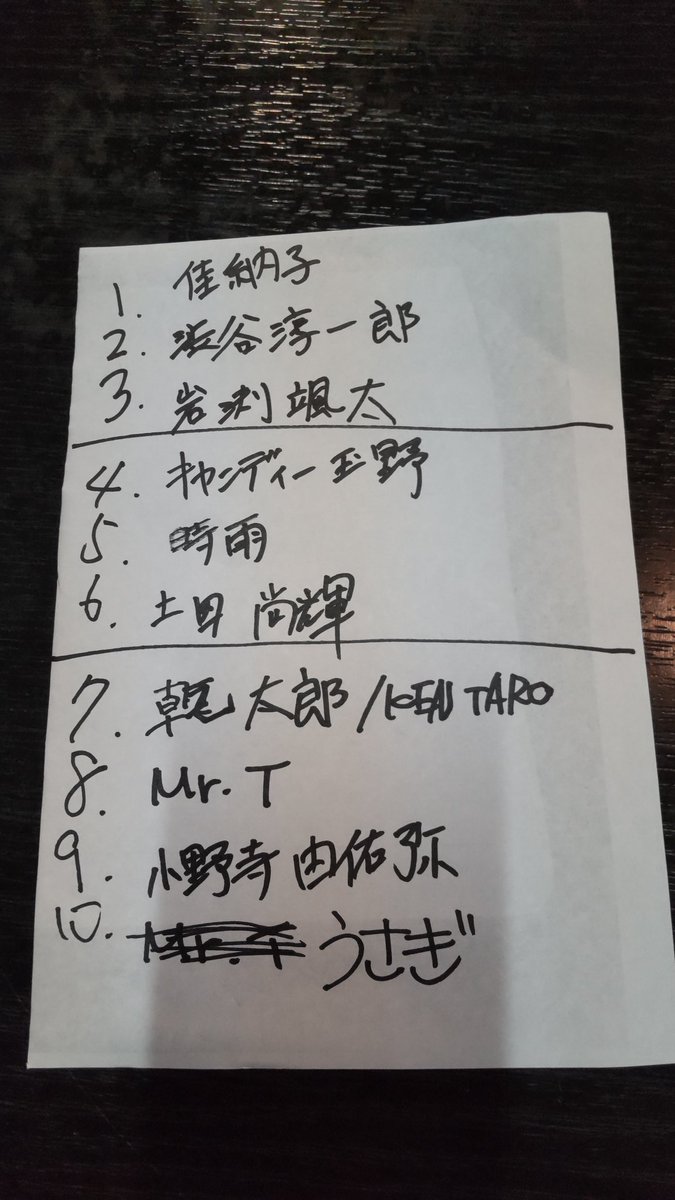 1. 佳納子
2. 渋谷淳一郎
3. 岩渕颯太
4. キャンディー玉野
5. 時雨
6. 土田尚輝
7. 太郎/KENTARO
8. Mr.T
9. 小野寺由佑弥
10. うさぎ